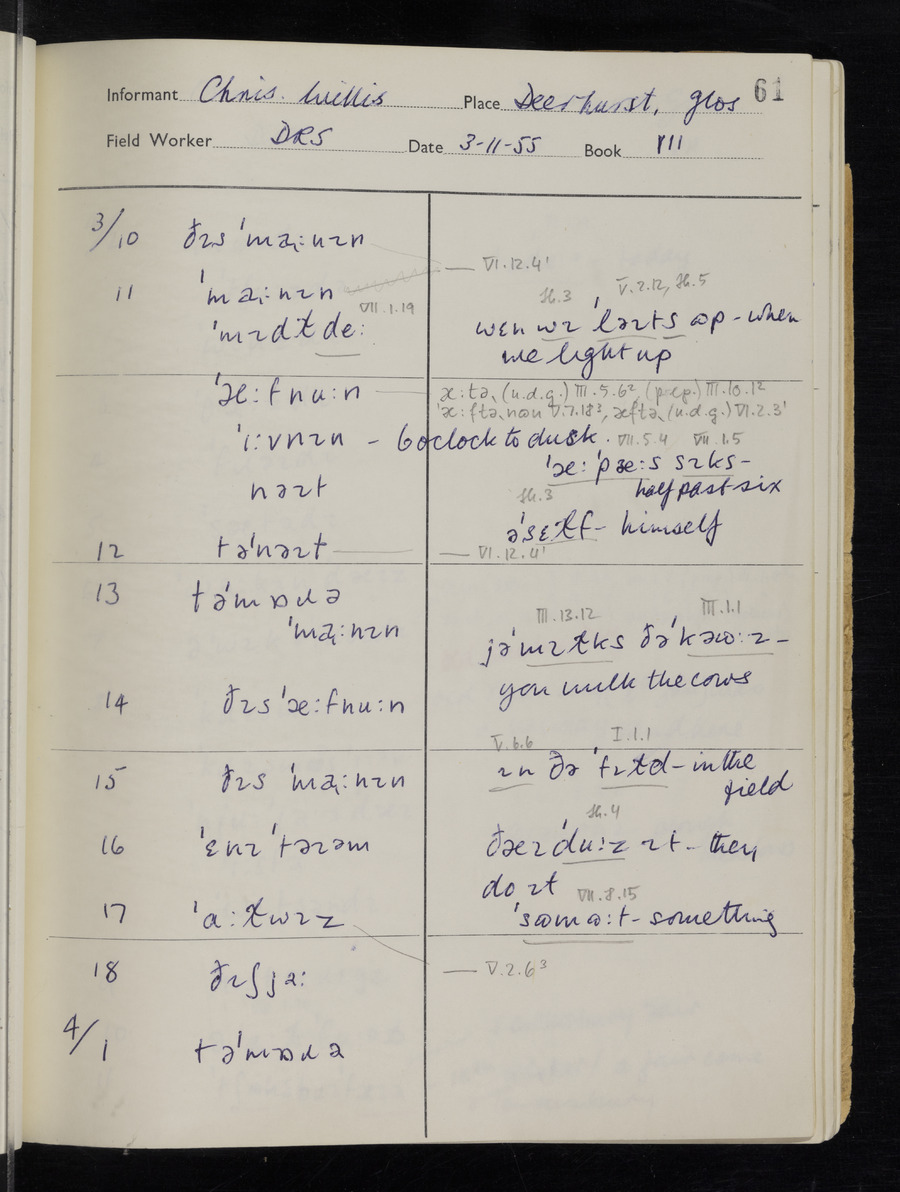 Informant Chris. Willis Place Deerhurst, Glos 61
Field Worker DRS Date 3-11-55 Book VII
3/10 ðɪs ˈmɑːnɪn
— VI.12.4¹
11 ˈmɑːnɪn
VII.1.19
ˈmɪdɫdeː
Sh.3 V.2.12, Sh.5
wɛn wɪ ˈləɪts ɷp - when
we light up
ˈæːfnuːn
æːtə, (u.d.g.) III.5.6², (prep.) III.10.1²
ˈæːftənɷn V.7.18³, æftə, (u.d.g.) VI.2.3¹
ˈiːvnɪn - 6 oclock to dusk.
VII.5.4 VII.1.5
ˈæːˈpæːs sɪks -
half past six
nəɪt
Sh.3
əˈsɛɫf - himself
12 təˈnəɪt
— VI.12.4¹
13 təˈmɒɹə
ˈmɑːnɪn
III.13.12 III.1.1
jəˈmɪɫks ðəˈkəɷːz -
you milk the cows
14 ðɪsˈæːfnuːn
V.6.6 I.1.1
ɪn ðə ˈfɪɫd - in the
field
15 ðɪs ˈmɑːnɪn
Sh.4
16 ˈɛnɪˈtəɪəm
ðəɪˈduːz ɪt - they
do it
VII.8.15
17 ˈɑːɫwɪz
ˈsɷmɷːt - something
— V.2.6³
18 ðɪʃjəː
4/1 təˈmɒɹə